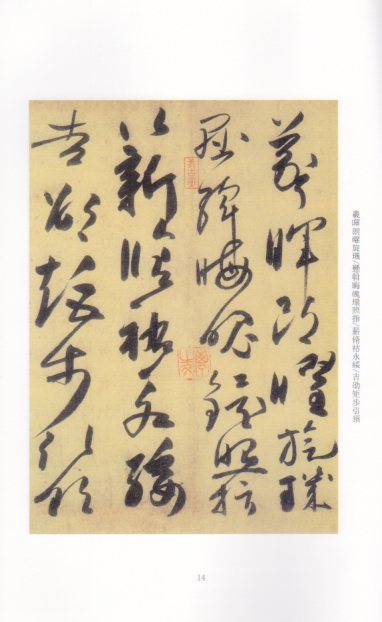 羲暉朗曜旋璣
懸斡晦魄環照指
薪脩祜永綏
吉劭矩步引領
羲暉朗曜旋璣/懸斡晦魄環照指/薪脩祜永綏/吉劭矩步引領
14